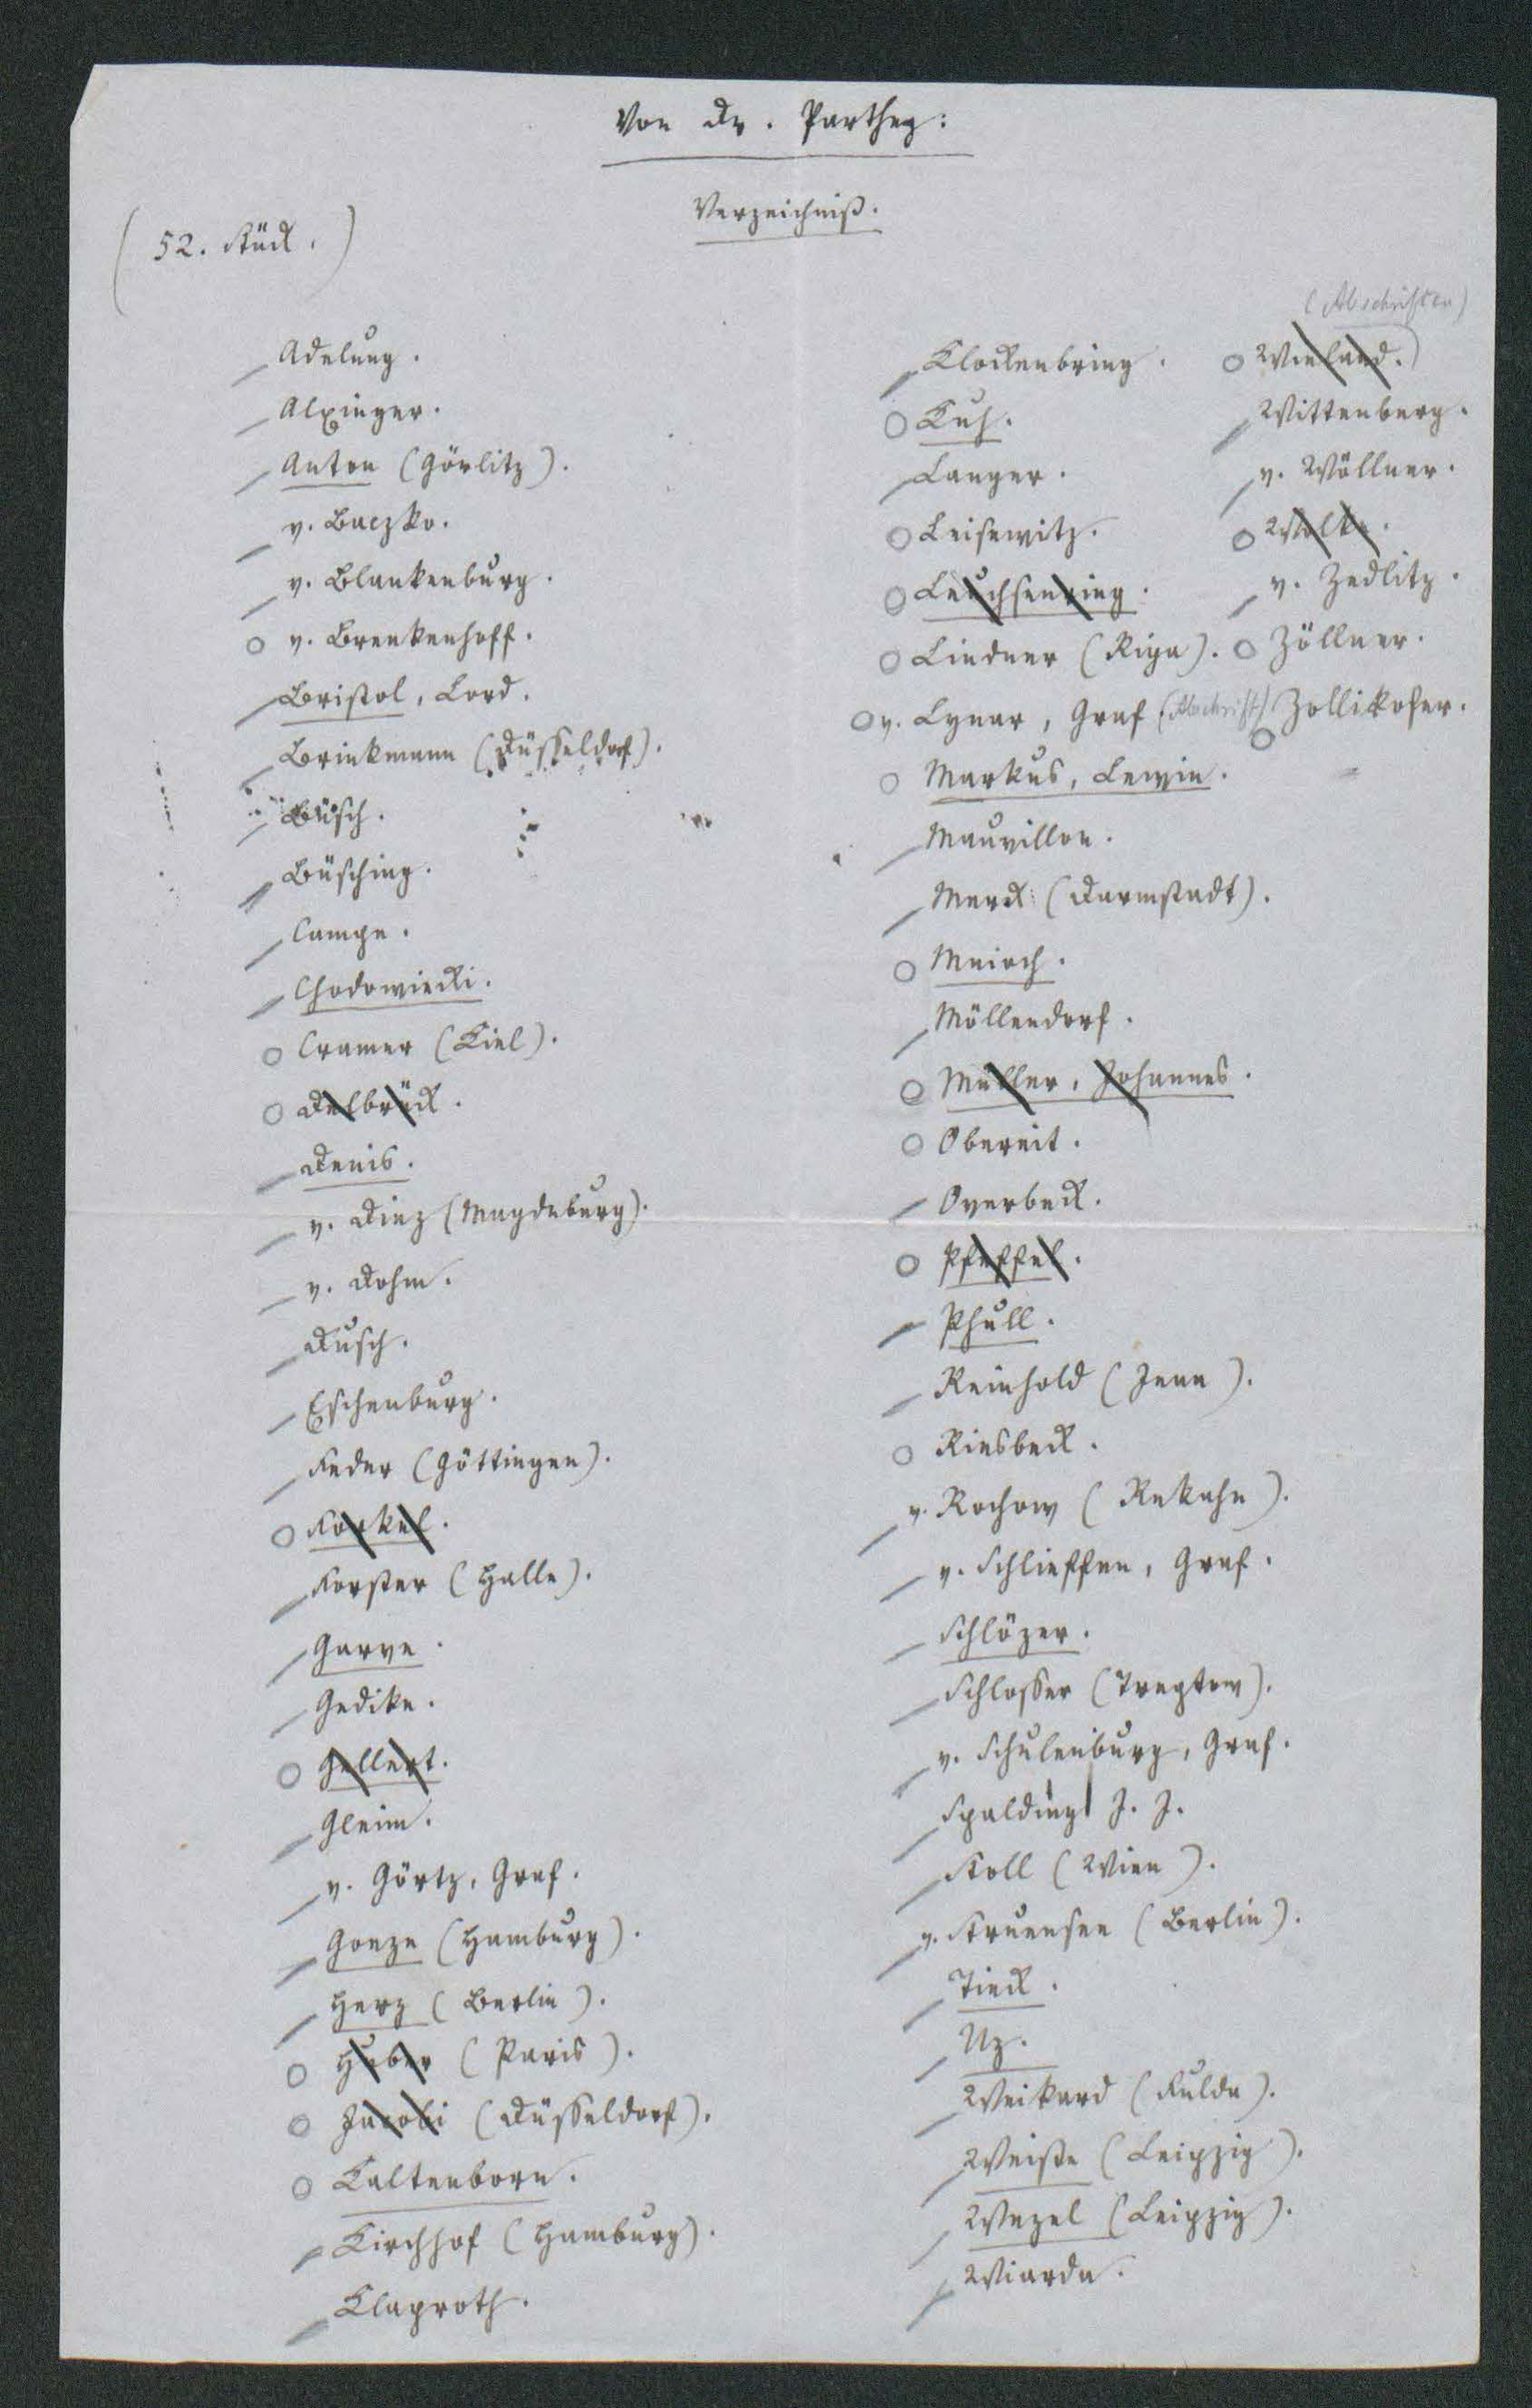 Von Dr. Parthey:
Verzeichniß.
(52. Stück.)
Adelung.
Alxinger.
Anton (Görlitz).
v. Baczko.
v. Blankenburg.
v. Brenkenhoff.
Bristol, Lord.
Brinkmann (Düsseldorf).
Büsch.
Büsching.
Campe.
Chodowiecki.
Cramer (Kiel).
Delbrück.
Denis.
v. Diez (Magdeburg).
v. Dohm.
Dusch.
Eschenburg.
Feder (Göttingen).
Forkel.
Forster (Halle).
Garve.
Gedike.
Gellert.
Gleim.
v. Görtz, Graf.
Goeze (Hamburg).
Herz (Berlin).
Huber (Paris).
Jacobi (Düsseldorf).
Kaltenborn.
Kirchhof (Hamburg).
Klaproth.
Klockenbring.
Kuh.
Langer.
Leisewitz.
Leuchsenring.
Lindner (Riga).
v. Lynar, Graf (Abschrift)
Markus, Lewin.
Mauvillon.
Merck (Darmstadt).
Mnioch.
Möllendorf.
Müller, Johannes.
Obereit.
Overbeck.
Pfeffel.
Phull.
Reinhold (Jena).
Riesbeck.
v. Rochow (Rekahn).
v. Schlieffen, Graf.
Schlözer.
Schlosser (Treptow).
v. Schulenburg, Graf.
Spalding J. J.
Stoll (Wien).
v. Struensee (Berlin).
Tieck.
Uz.
Weikard (Fulda).
Weiße (Leipzig).
Wezel (Leipzig).
Wiarda.
(Abschriften)
Wieland.
Wittenberg.
v. Wöllner.
Wolke.
v. Zedlitz.
Zöllner.
Zollikofer.